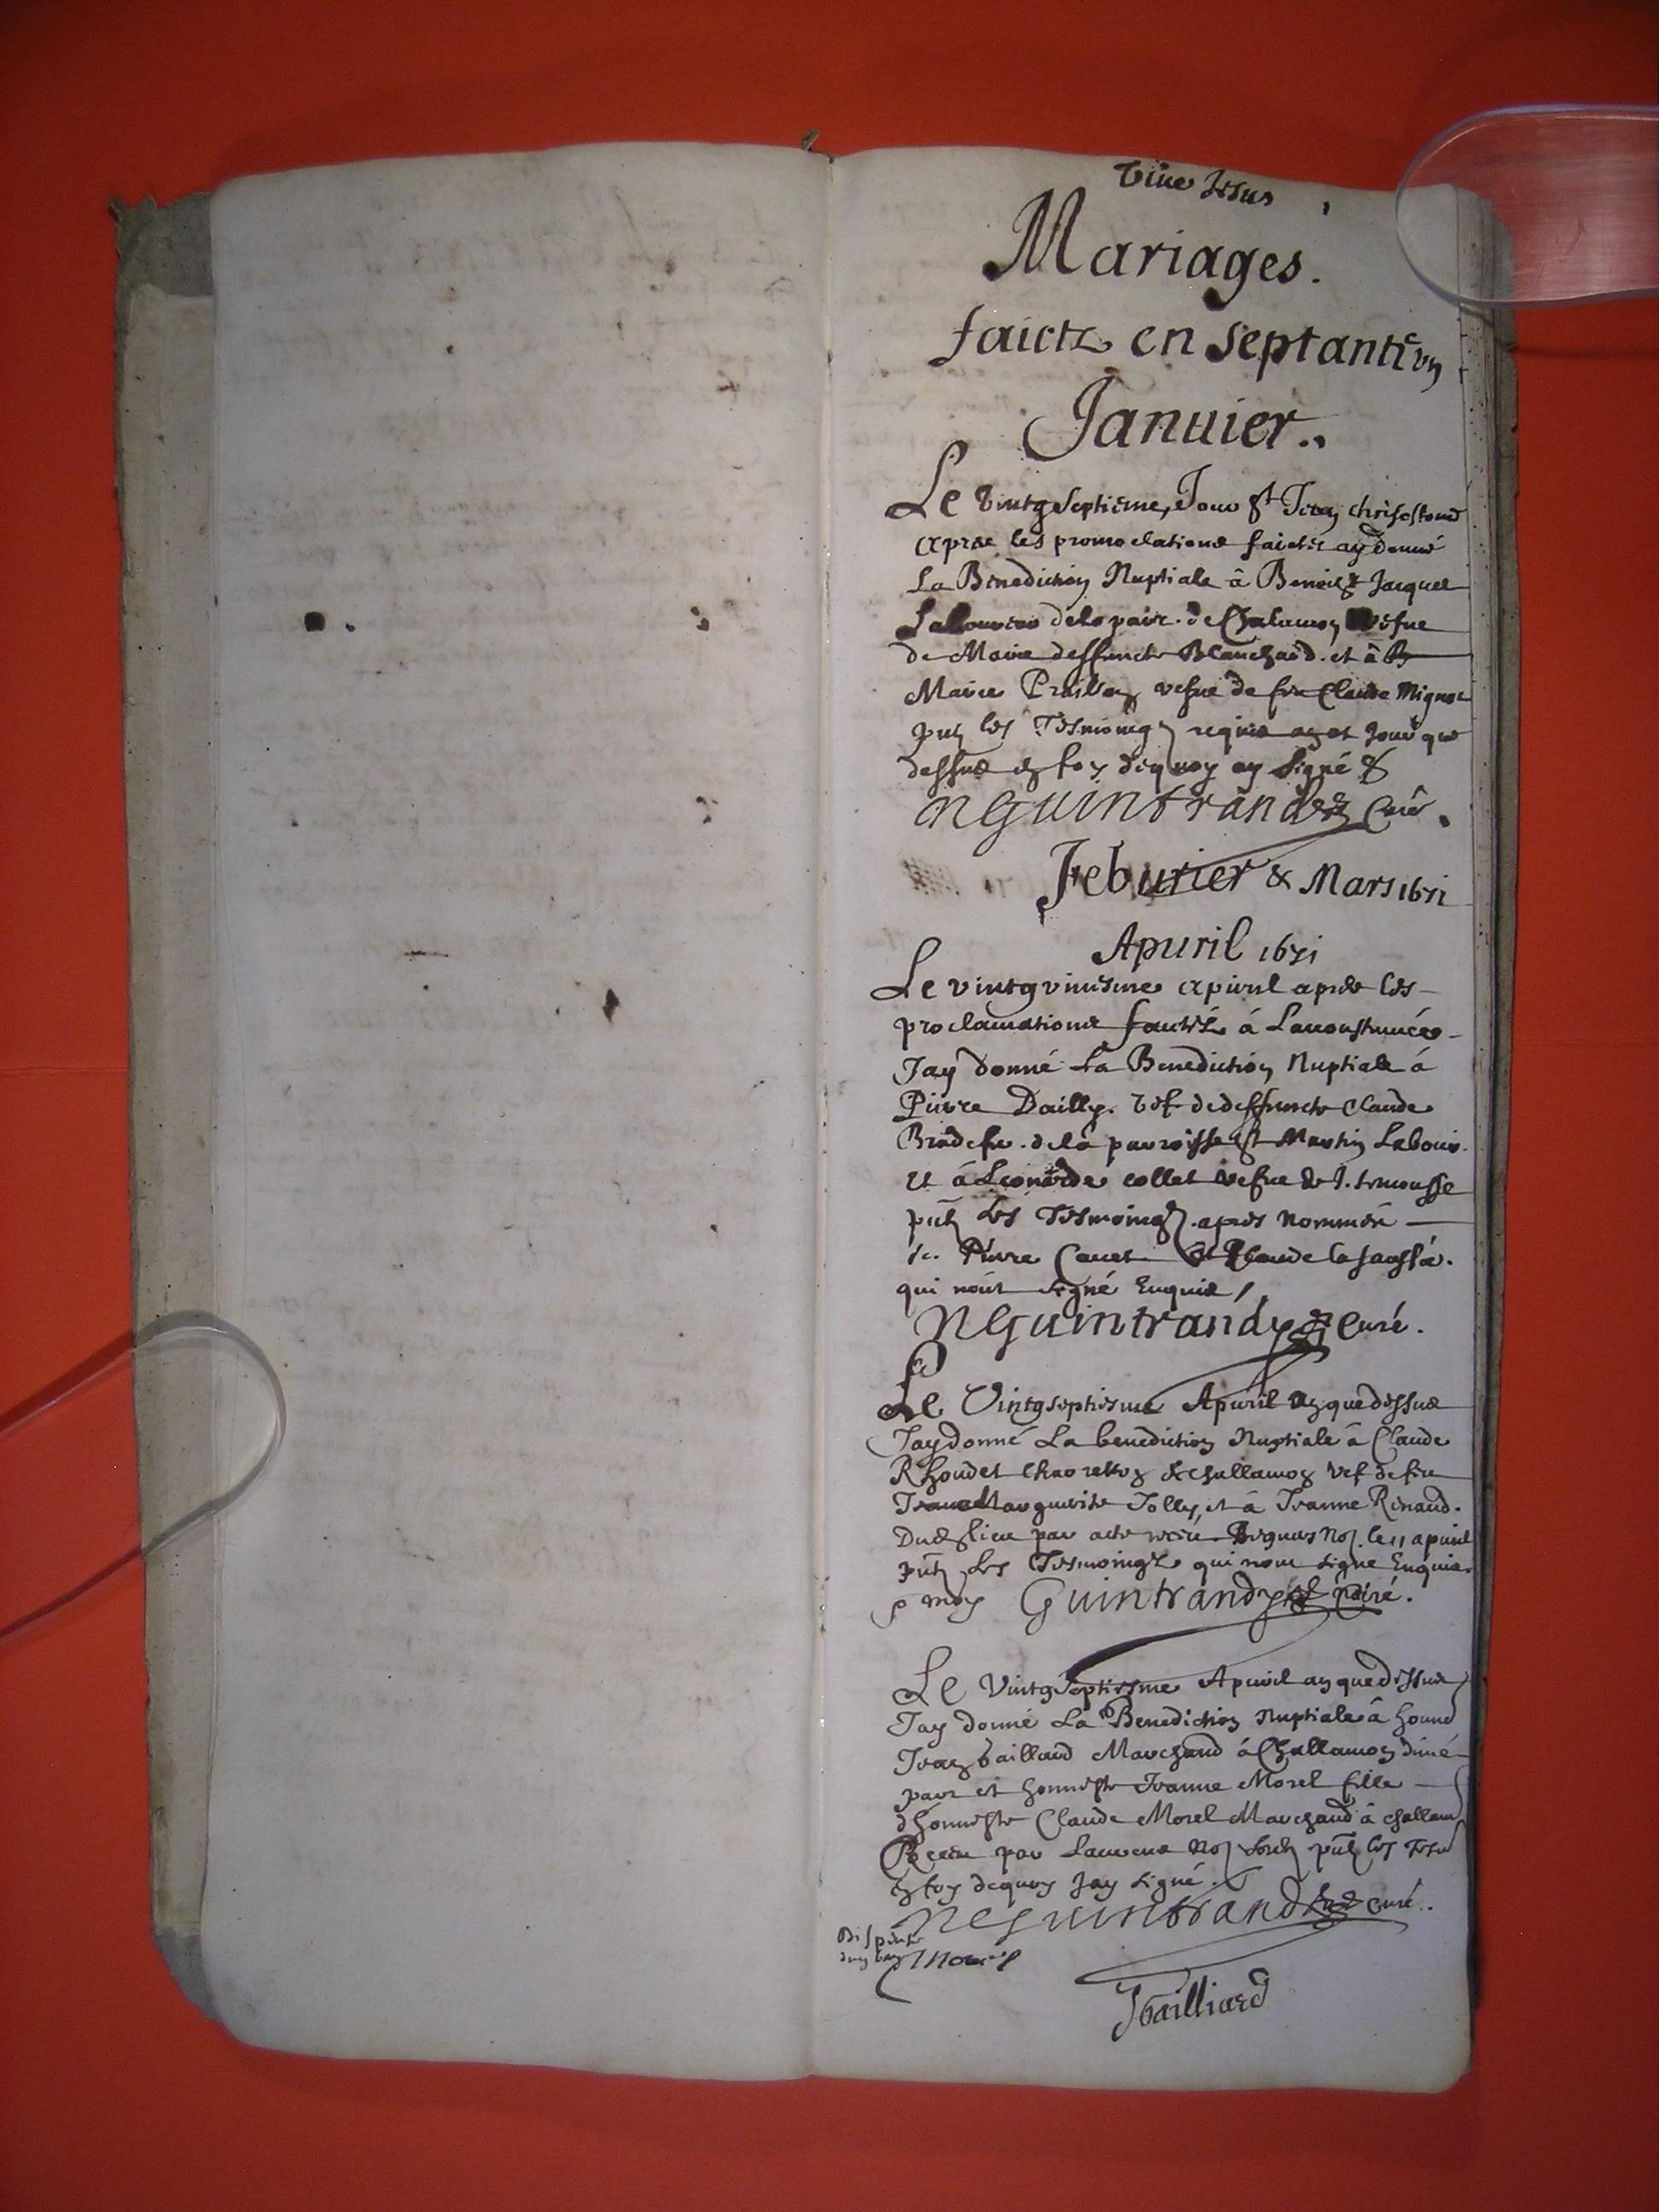 Viue Jesus
Mariages.
faictz en septante vn
Januier..
Le vintgseptieme, Jour St Jean chrisostome
apres les promoclations faictes ay donné
La Benediction Nuptiale â Benoist Jacquet
de la parr. de Chalamon vefue
de Marie deffuncte Blanchard. et â
Marie vefue de feu Claude Mignot
pnt les Tesmoingz requis an et Jour que
dessus en foy dequoy ay signé &
NGuintrandy Curé.
Feburier & Mars 1671
Apuril 1671
Le vintgvniesme apuril apres les
proclamations faictes â Lacoustumées
Jay donné La Benediction Nuptiale á
Pierre Dailly. vef de deffuncte Claude
de la parroisse St Martin
et â Leonarde collet vefue de J.
pnt Les Tesmoingz. apres nommés
sc. Pierre Canet et Claude
qui nont signé Enquis /
NGuintrandy Curé.
Le Vintgseptiesme Apuril an que dessus
Jay donné La benediction Nuptiale â Claude
Rhoudet de Challamon vef de feu
Marguerite Jolly, et â Jeanne Renaud.
Dud. lieu par acte receu No.re le 11 apuril
pnt Les Tesmoingz qui nont signe Enquis.
p moy Guintrandy Curé.
Le Vintgseptiesme Apuril an que dessus
Jay donné La Benediction Nuptiale â honne
Jean baillard Marchand â Challamon
part et honneste Jeanne Morel fille
d'honneste Claude Morel Marchand â challam
Receu par No.re pnt les
en foy dequoy Jay signé.
NGuintrandy Curé.
Dispense
dun ban Morel
J bailliard